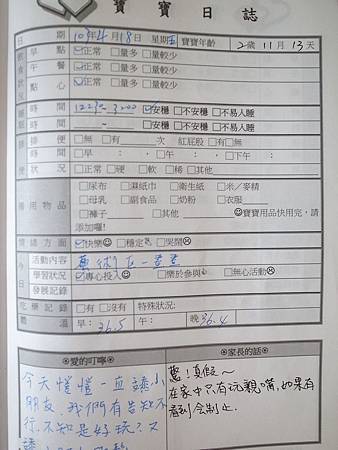 寶寶日誌
日期 103年4月18日 星期五 寶寶年齡 2歲11月13天
飲食狀況
早點 ☑正常 □量多 □量較少
午餐 ☑正常 □量多 □量較少
點心 ☑正常 □量多 □量較少
睡眠
時間 1230~3:00 ☑安穩 □不安穩 □不易入睡
時間 : — : □安穩 □不安穩 □不易入睡
排便
排便 □無 □有 次 紅屁股 □有 □無
時間 □早 : 、□午: 、□下午:
狀況 □正常 □硬 □軟 □稀 □其他
備用物品
□尿布 □濕紙巾 □衛生紙 □米/麥精
□母乳 □副食品 □奶粉 □衣服
□褲子 □其他 ☺寶寶用品快用完,請
添加喔!
情緒方面 ☑快樂☺ □穩定 □哭鬧☹
今日
活動內容 藝術區-畫畫
學習狀況 ☑專心投入☺ □樂於參與 □無心活動☹
發展記錄
吃藥記錄 □有 □沒有 特殊狀況:
體溫 早: 36.5 午: 晚: 36.4
◎愛的叮嚀◎
今天愷愷一直親小
朋友,我們有告知不
行,不知是好玩?又
◎家長的話◎
真假~
在家中只有玩親嘴,如果有
看到會制止.